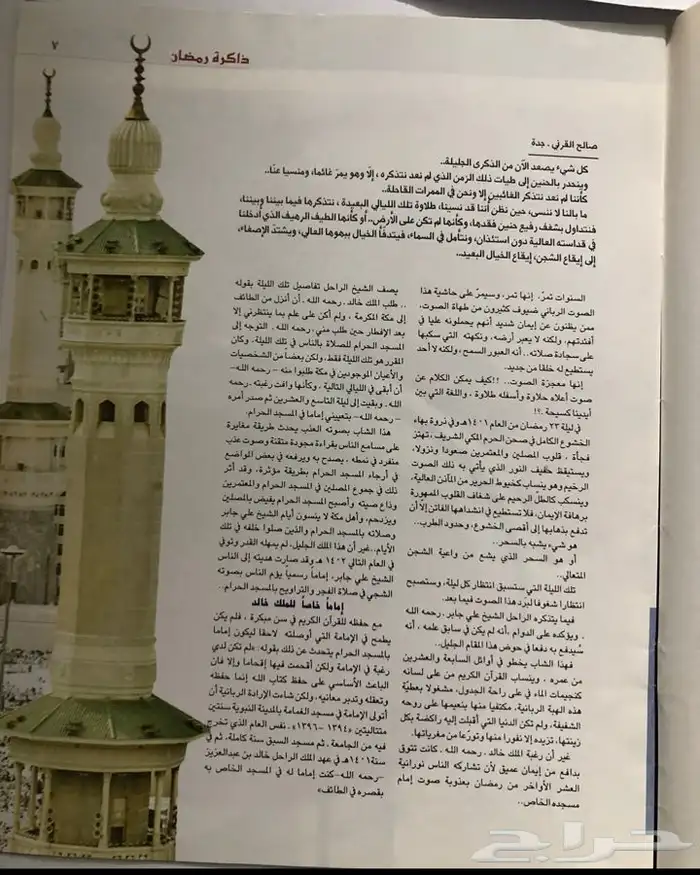 ذاكرة رمضان
٧
صالح القرني . جدة
كل شيء يصعد الآن من الذكرى الجليلة..
وينحدر بالحنين إلى طيات ذلك الزمن الذي لم نعد نتذكره ، إلّا وهو يمرّ غائما، ومنسيا عنّا..
كأننا لم نعد نتذكر الغائبين إلا ونحن في الممرات القاحلة..
ما بالنا لا ننسى، حين نظن أننا قد نسينا، طلاوة تلك الليالي البعيدة ، نتذكرها فيما بيننا وبيننا،
فنتداول بشغف رفيع حنين فقدها، وكأنها لم تكن على الأرض.. أو كأنها الطيف الرهيف الذي أدخلنا
في قداسته العالية دون استئذان، ونتأمل في السماء، فيتدفأ الخيال ببهوها العالي، ويشتدّ الإصغاء،
إلى إيقاع الشجن، إيقاع الخيال البعيد..
السنوات تمرّ. إنها تمر، وسيمرّ على حاشية هذا
الصوت الرباني ضيوف كثيرون من طهاة الصوت،
ممن يظنون عن إيمان شديد أنهم يحملونه عليا في
أفئدتهم، ولكنه لا يعبر أرضه، ونكهته التي سكبها
على سجادة صلاته.. أنه العبور السمح ,ولكنه لا أحد
يستطيع له خلقا من جديد.
إنها معجزة الصوت.. !!كيف يمكن الكلام عن
صوت أعلاه حلاوة وأسفله طلاوة ، واللغة التي بين
أيدينا كسيحة .؟!
في ليلة ٢٣ رمضان من العام ١٤٠١هـ وفي ذروة بهاء
الخشوع الكامل في صحن الحرم المكي الشريف ، تهتز
فجأة ، قلوب المصلين والمعتمرين صعودا ونزولا،
ويستيقظ حفيف النور الذي يأتي به ذلك الصوت
الرخيم وهو ينساب كخيوط الحرير من المآذن العالية،
وينسكب كالطل الرحيم على شغاف القلوب المبهورة
برهافة الإيمان، فلا تستطيع في انشداهها الفاتن إلا أن
تدفع بذهابها إلى أقصى الخشوع، وحدود الطرب..
هو شيء يشبه بالسحر..
أو هو السحر الذي يشع من واعية الشجن
المتعالي..
تلك الليلة التي ستسبق انتظار كل ليلة، وستصبح
انتظارا شغوفا لبرد هذا الصوت فيما بعد.
فيما يتذكره الراحل الشيخ علي جابر. رحمه الله
. ويؤكده على الدوام ,أنه لم يكن في سابق علمه ، أنه
سيُدفع به دفعا في حوض هذا المقام الجليل..
فهذا الشاب يخطو في أوائل السابعة والعشرين
من عمره ، وينساب القرآن الكريم من على لسانه
كنجيمات الماء في على راحة الجدول، مشغولا بعطيّة
هذه الهبة الربانية، مكتفيا منها بنعيمها على روحه
الشفيفة، ولم تكن الدنيا التي أقبلت إليه راكضة بكل
زينتها، تزيده إلا نفورا منها وتورّعا من مغرياتها.
غير أن رغبة الملك خالد . رحمه الله . كانت تتوق
بدافع من إيمان عميق لأن تشاركه الناس نورانية
العشر الأواخر من رمضان بعذوبة صوت إمام
مسجده الخاص..
يصف الشيخ الراحل تفاصيل تلك الليلة بقوله
.. طلب الملك خالد . رحمه الله . أن أنزل من الطائف
إلى مكة المكرمة ، ولم أكن على علم بما ينتظرني إلا
بعد الإفطار حين طلب مني . رحمه الله . التوجه إلى
المسجد الحرام للصلاة بالناس في تلك الليلة، وكان
المقرر هو تلك الليلة فقط، ولكن بعضا من الشخصيات
والأعيان الموجودين في مكة طلبوا منه – رحمه الله–
أن أبقى في الليالي التالية ، وكأنها وافت رغبته. رحمه
الله . وبقيت إلى ليلة التاسع والعشرين ثم صدر أمره
– رحمه الله– بتعييني إماما في المسجد الحرام.
هذا الشاب بصوته العذب يحدث طريقة مغايرة
على مسامع الناس بقراءة مجودة متقنة وصوت عذب
منفرد في نمطه ، يصدح به ويرفعه في بعض المواضع
في أرجاء المسجد الحرام بطريقة مؤثرة، وقد أثر
ذلك في جموع المصلين في المسجد الحرام والمعتمرين
وذاع صيته وأصبح المسجد الحرام يفيض بالمصلين
ويزدحم، وأهل مكة لا ينسون أيام الشيخ علي جابر
وصلاته بالمسجد الحرام والذين صلوا خلفه في تلك
الأيام..غير أن هذا الملك الجليل، لم يمهله القدر وتوفي
في العام التالي ١٤٠٢ هـ وقد صارت هديته إلى الناس
الشيخ علي جابر، إماما رسميا يؤم الناس بصوته
الشجي في صلاة الفجر والتراويح بالمسجد الحرام..
إماماً خاصاً للملك خالد
مع حفظه للقرآن الكريم في سن مبكرة ، فلم يكن
يطمح في الإمامة التي أوصلته لاحقا ليكون إماما
بالمسجد الحرام يتحدث عن ذلك بقوله: «لم تكن لدي
رغبة في الإمامة ولكن أقحمت فيها إقحاما وإلا فان
الباعث الأساسي على حفظ كتاب الله إنما حفظه
وتعقله وتدبر معانيه، ولكن شاءت الإرادة الربانية أن
أتولى الإمامة في مسجد الغمامة بالمدينة النبوية سنتين
متتاليتين «١٣٩٤ -١٣٩٦» . نفس العام الذي تخرج
فيه من الجامعة . ثم مسجد السبق سنة كاملة، ثم في
سنة ١٤٠١هـ في عهد الملك الراحل خالد بن عبدالعزيز
–رحمه الله–كنت إماما له في المسجد الخاص به
بقصره في الطائف»
حراج